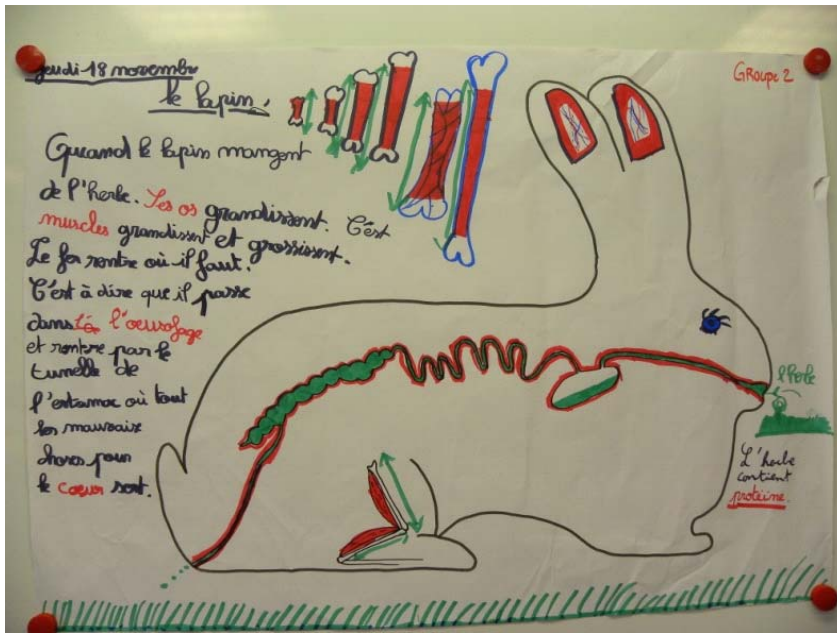 jeudi 18 novembre
Groupe 2
le lapin.
Quand le lapin mangent
de l'herbe. Ses os grandissent. C'est
muscles grandissent et grossissent.
Le fer rentre où il faut.
C'est à dire que il passe
dans l'oeusofage
et rentre par le
tunelle de
l'estamac où tout
les mauvaise
choses pour
le coeur sort.
l'herbe
L'herbe
contient
protéine.